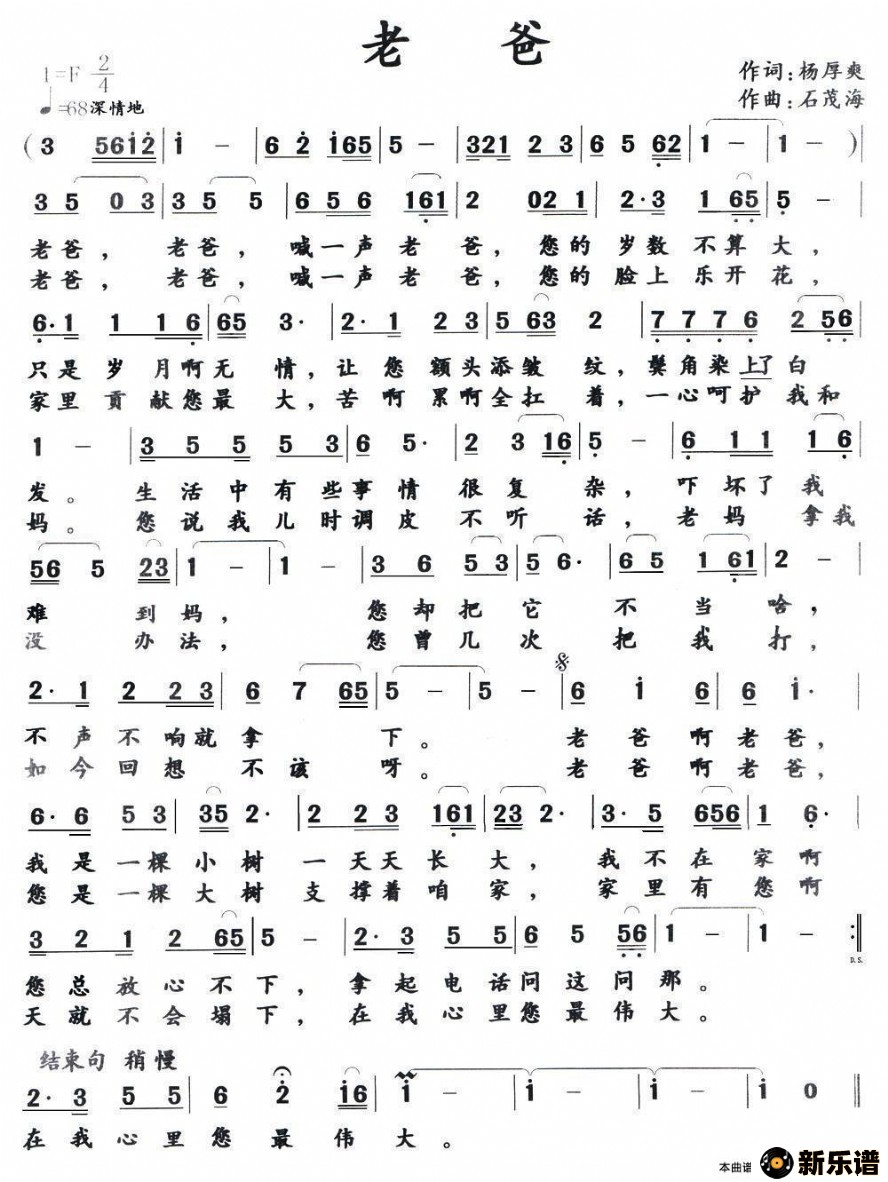 老 爸
1=F 2/4
作词:杨厚爽
♩=68深情地
作曲:石茂海
( 3 561̇2̇ | 1̇ - | 6 2̇ 1̇65 | 5 - | 321 2 3 | 6 5 62 | 1 - | 1 - )
3 5 0 3 | 3 5 5 | 6 5 6 161 | 2 02 1 | 2·3 1 65 | 5 -
老爸, 老爸, 喊一声老 爸, 您的 岁数 不算大,
老爸, 老爸, 喊一声老 爸, 您的 脸上 乐开花,
6·1 1 1 6 | 65 3· | 2·1 2 3 | 5 63 2 | 7 7 7 6 2 56
只是 岁 月啊无 情,让 您 额头添皱 纹,鬓角染上了白
家里 贡 献您最 大,苦 啊 累啊全扛 着,一心呵护 我和
1 - | 3 5 5 5 3 | 6 5· | 2 3 16 | 5 - | 6 1 1 1 6
发。 生 活 中 有 些事 情 很 复 杂, 吓 坏了 我
妈。 您 说 我 儿 时调 皮 不 听 话, 老 妈 拿我
56 5 23 | 1 - | 1 - | 3 6 5 3 | 5 56· | 6 5 1 61 | 2 -
难 到妈, 您却把 它 不 当 啥,
没 办法, 您曾几 次 把 我 打,
2·1 2 2 3 | 6 7 65 | 5 - | 5 - | 6 1̇ 6 6 1̇·
不 声 不 响就 拿 下。 老 爸 啊 老 爸,
如 今 回 想 不 该 呀。 老 爸 啊 老 爸,
6·6 5 3 | 35 2· | 2 2 3 161 | 23 2· | 3·5 656 | 1 6·
我 是 一 棵 小 树 一 天天 长 大, 我 不 在 家啊
您 是 一 棵 大 树 支 撑着 咱 家, 家 里 有 您啊
3 2 1 2 65 | 5 - | 2·3 5 5 | 6 5 56 | 1 - | 1 - :‖
D.S.
您 总 放 心 不 下, 拿 起 电 话 问 这 问 那 。
天 就 不 会 塌 下, 在 我 心 里 您 最 伟 大 。
结束句 稍慢
2·3 5 5 | 6 2̇ 1̇6 | 1̇ - | 1̇ - | 1̇ - | 1̇ 0 ‖
在 我 心 里 您 最 伟 大 。
本曲谱
新乐谱